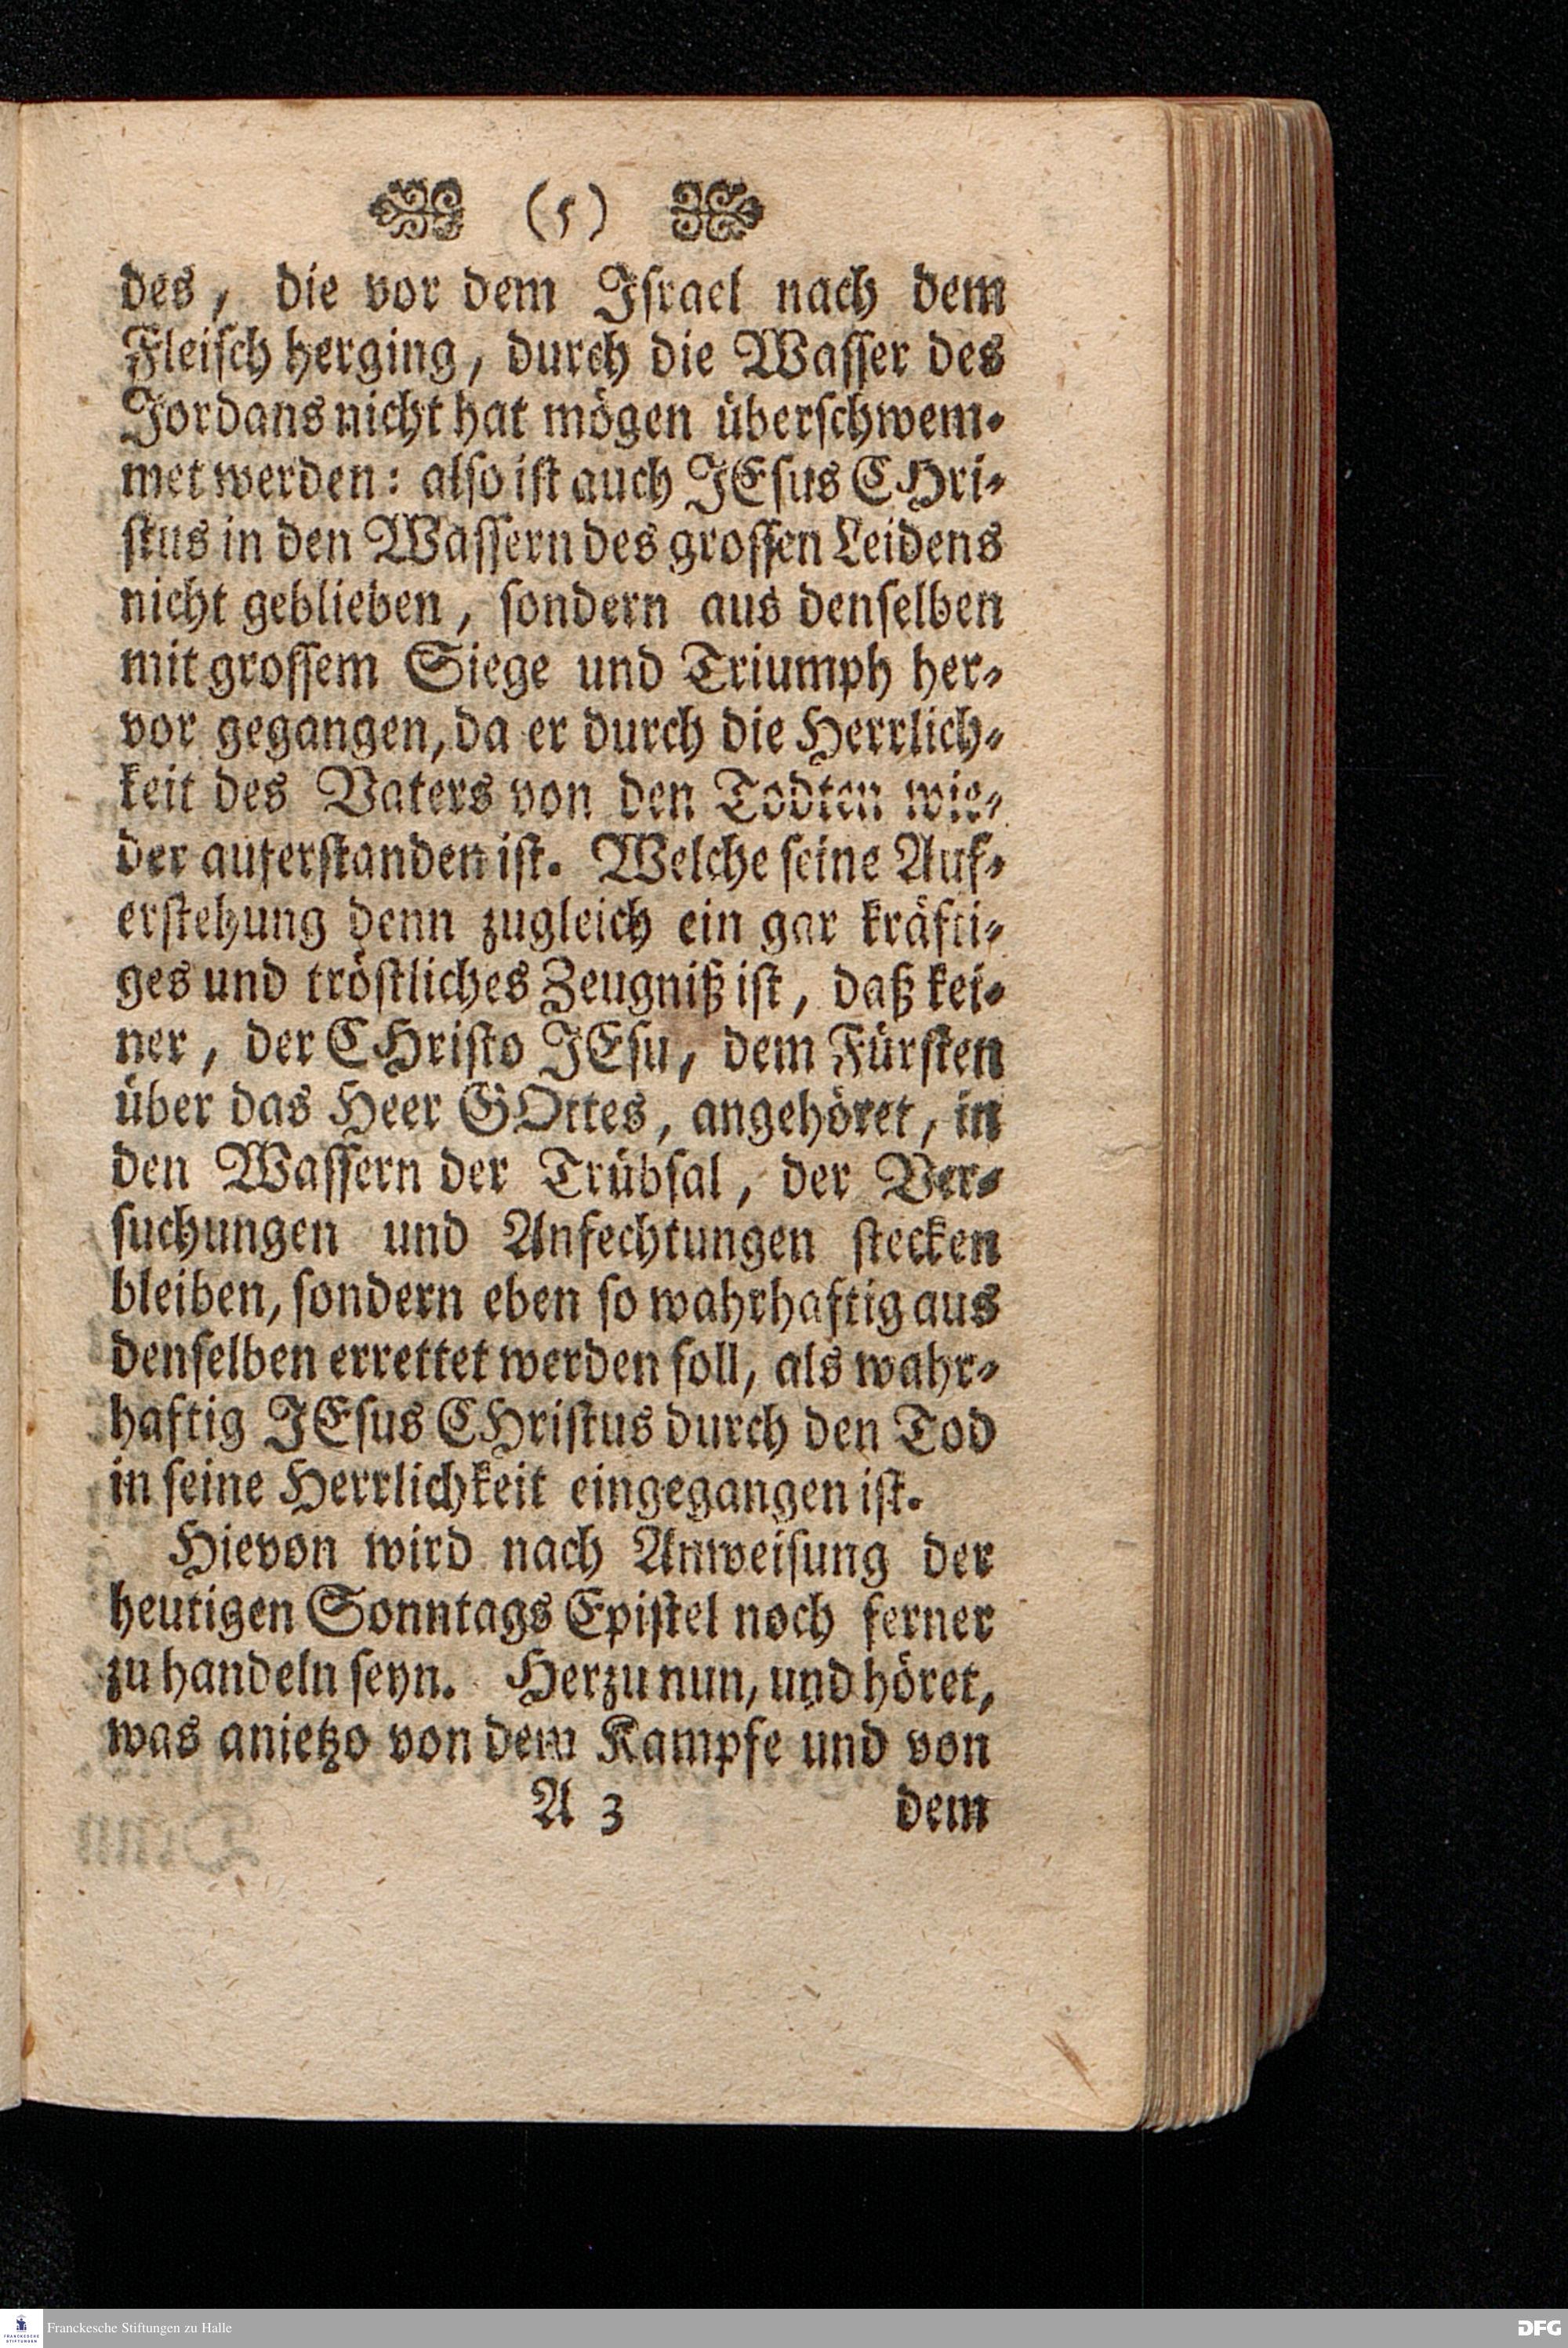 (5)
des, die vor dem Israel nach dem
Fleisch herging, durch die Wasser des
Jordans nicht hat mögen überschwem-
met werden: also ist auch JEsus CHri-
stus in den Wassern des grossen Leidens
nicht geblieben, sondern aus denselben
mit grossem Siege und Triumph her-
vor gegangen, da er durch die Herrlich-
keit des Vaters von den Todten wie-
der auferstanden ist. Welche seine Auf-
erstehung denn zugleich ein gar kräfti-
ges und tröstliches Zeugniß ist, daß kei-
ner, der CHristo JEsu, dem Fürsten
über das Heer GOttes, angehöret, in
den Wassern der Trübsal, der Ver-
suchungen und Anfechtungen stecken
bleiben, sondern eben so wahrhaftig aus
denselben errettet werden soll, als wahr-
haftig JEsus CHristus durch den Tod
in seine Herrlichkeit eingegangen ist.
Hievon wird nach Anweisung der
heutigen Sonntags Epistel noch ferner
zu handeln seyn. Herzu nun, und höret,
was anietzo von dem Kampfe und von
A 3 dem
Franckesche Stiftungen zu Halle
DFG